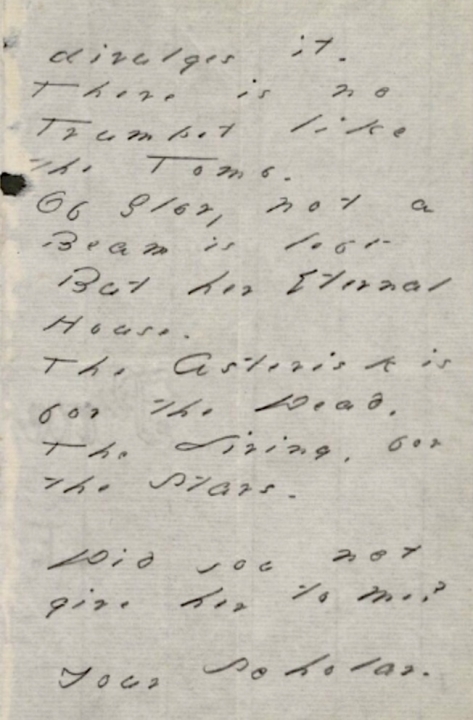 divulges it.
There is no
Trumpet like
the Tomb.
Of Glory not a
Beam is left
But her Eternal
House.
The Asterisk is
for the Dead,
The Living, for
the Stars.
Did you not
give her to me?
Your Scholar.